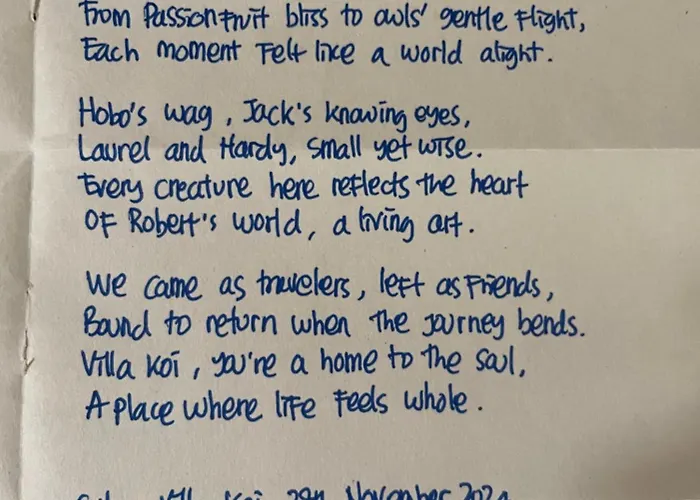 From Passionfruit bliss to owls' gentle flight,
Each moment felt like a world alight.
Hobo's wag, Jack's knowing eyes,
Laurel and Hardy, small yet wise.
Every creature here reflects the heart
Of Robert's world, a living art.
We came as travelers, left as friends,
Bound to return when the journey bends.
Villa Koi, you're a home to the soul,
A place where life feels whole.
Koi November